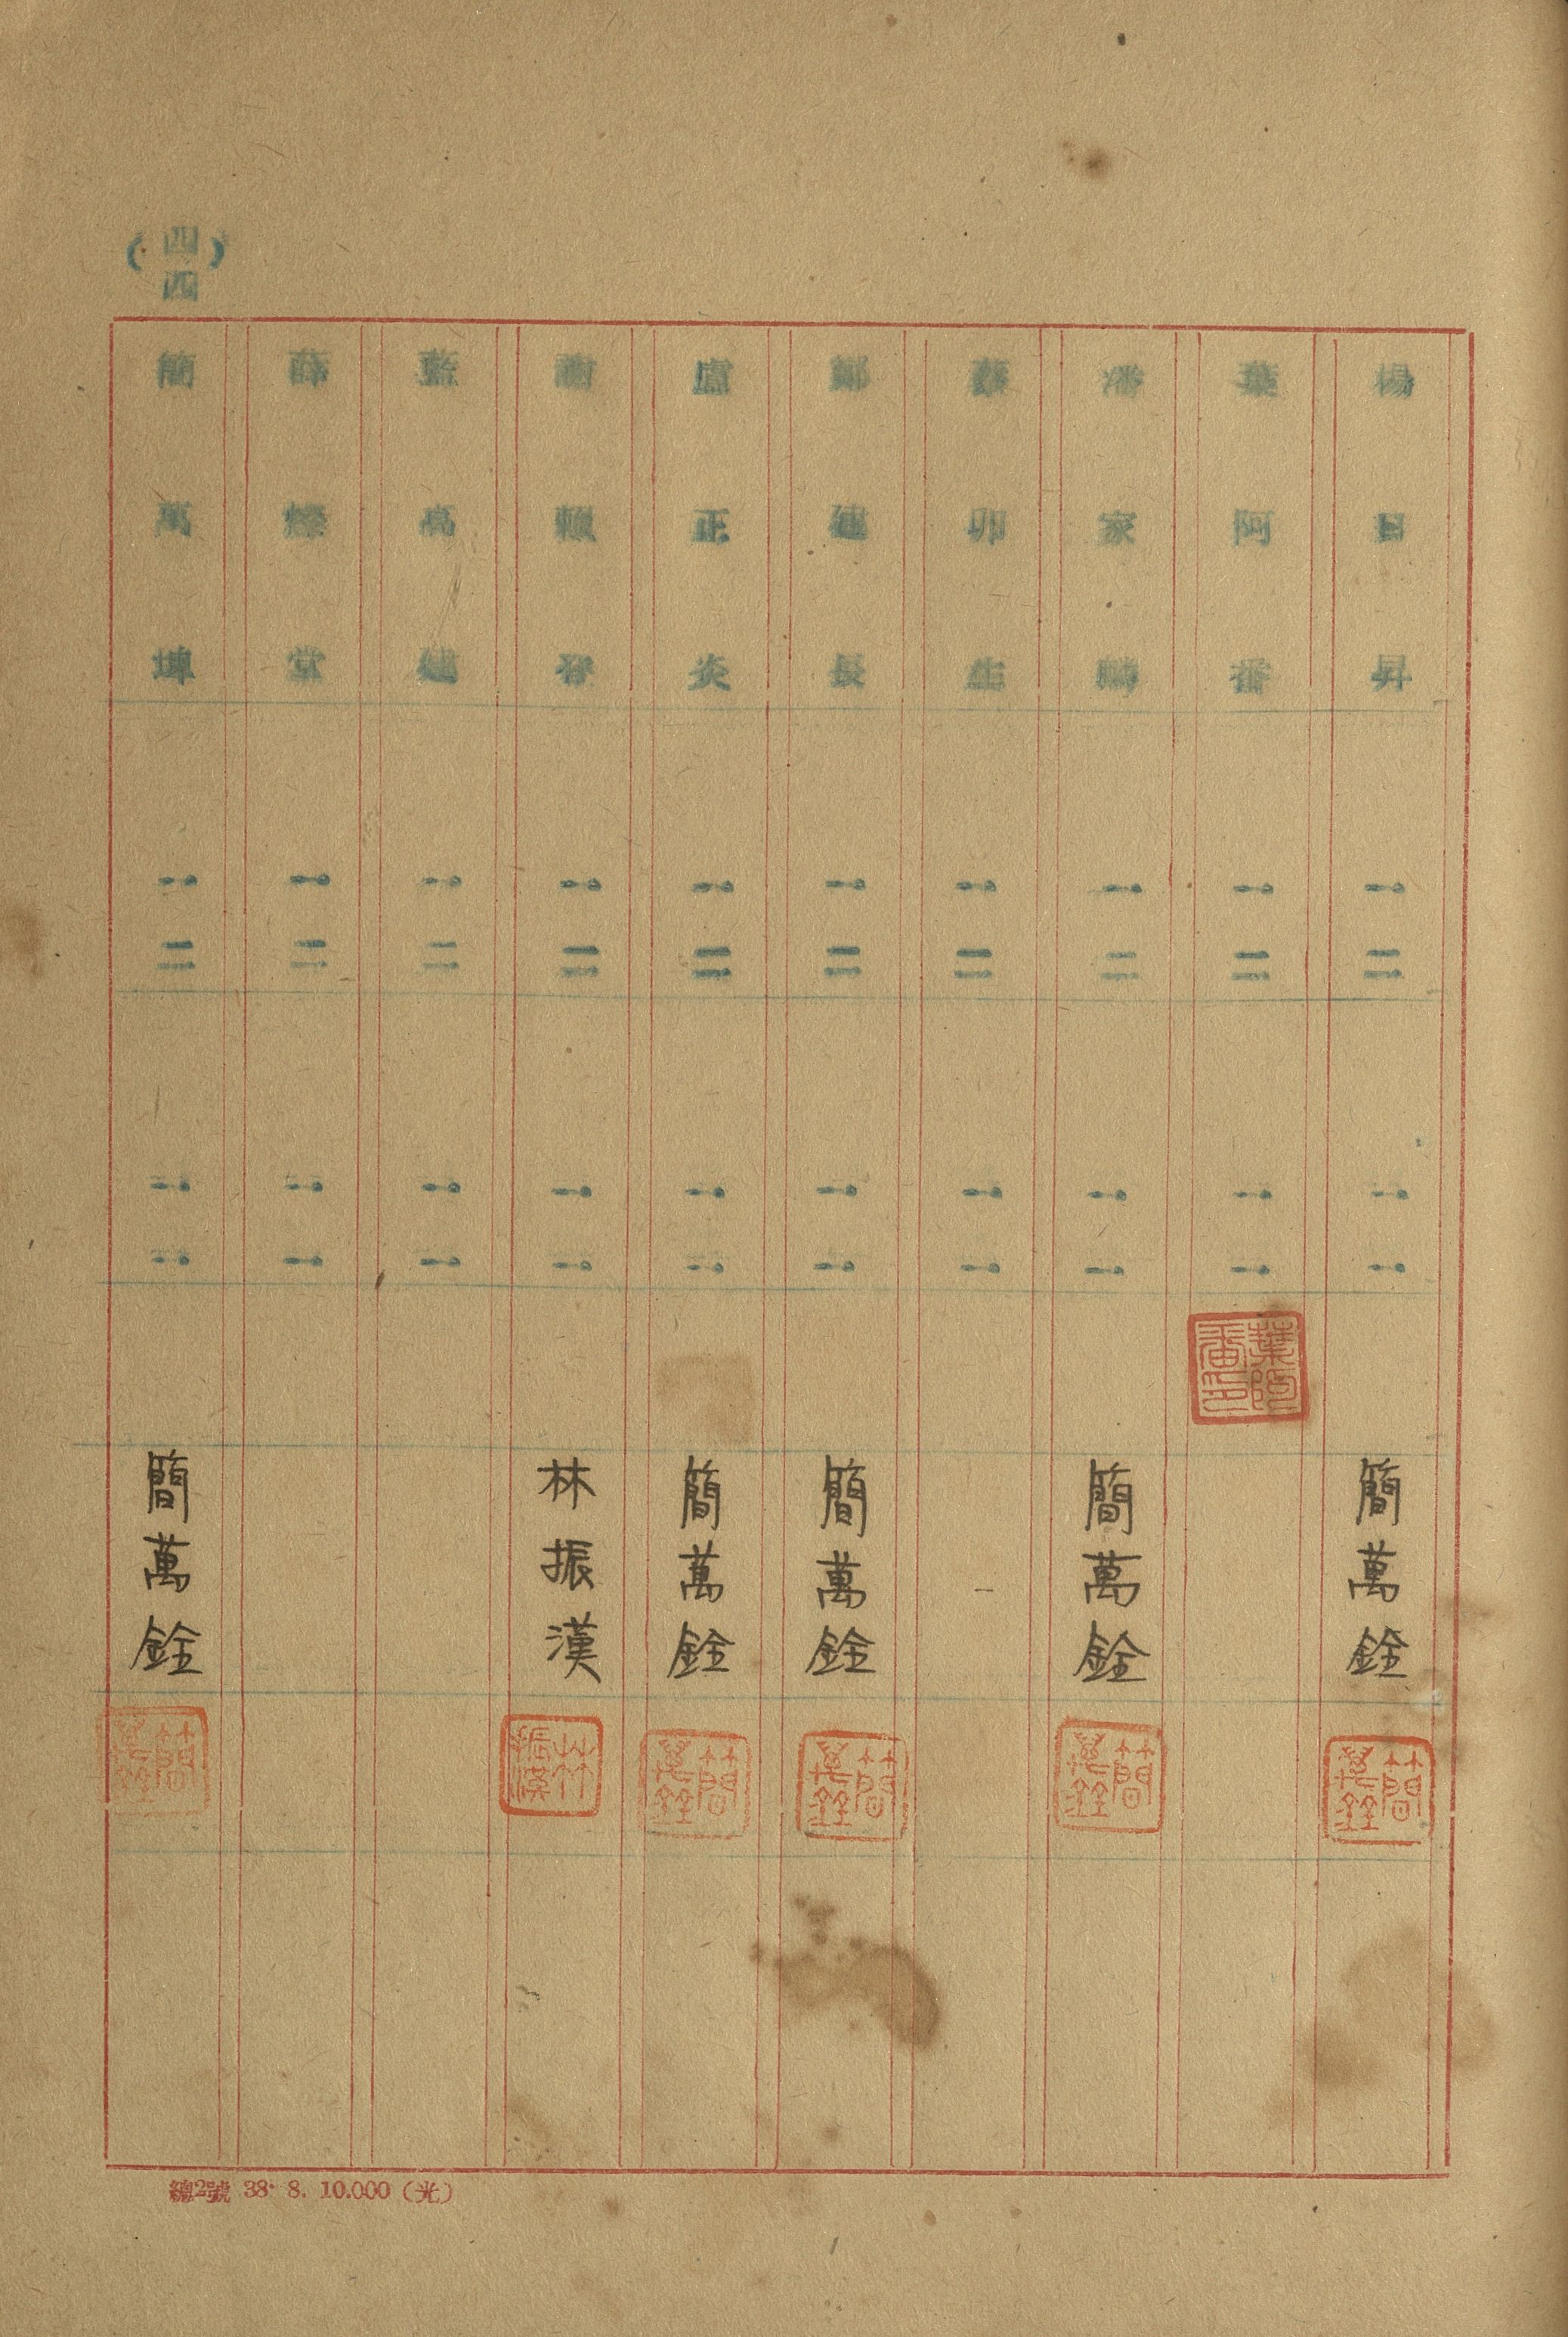 楊日昇 一二 一一 簡萬銓 簡萬銓
葉阿番 一二 一一 葉阿番印
潘家 一二 一一 簡萬銓 簡萬銓
卯生 一二 一一
鄭建長 一二 一一 簡萬銓 簡萬銓
盧正炎 一二 一一 簡萬銓 簡萬銓
謝 春 一二 一一 林振漢 林振漢
藍高建 一二 一一
薛 堂 一二 一一
簡萬埤 一二 一一 簡萬銓 簡萬銓
(四四)
總2號 38. 8. 10.000(光)